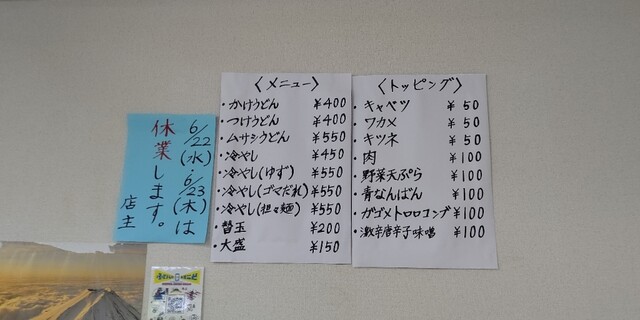 6/22(水)、6/23(木)は
休業します。
店主
〈メニュー〉
・かけうどん ¥400
・つけうどん ¥400
・ムサシうどん ¥550
・冷やし ¥450
・冷やし(ゆず) ¥550
・冷やし(ゴマだれ) ¥550
・冷やし(担々麺) ¥550
・替玉 ¥200
・大盛 ¥150
〈トッピング〉
・キャベツ ¥50
・ワカメ ¥50
・キツネ ¥50
・肉 ¥100
・野菜天ぷら ¥100
・青なんばん ¥100
・ガゴメトロロコンブ ¥100
・激辛唐辛子味噌 ¥100